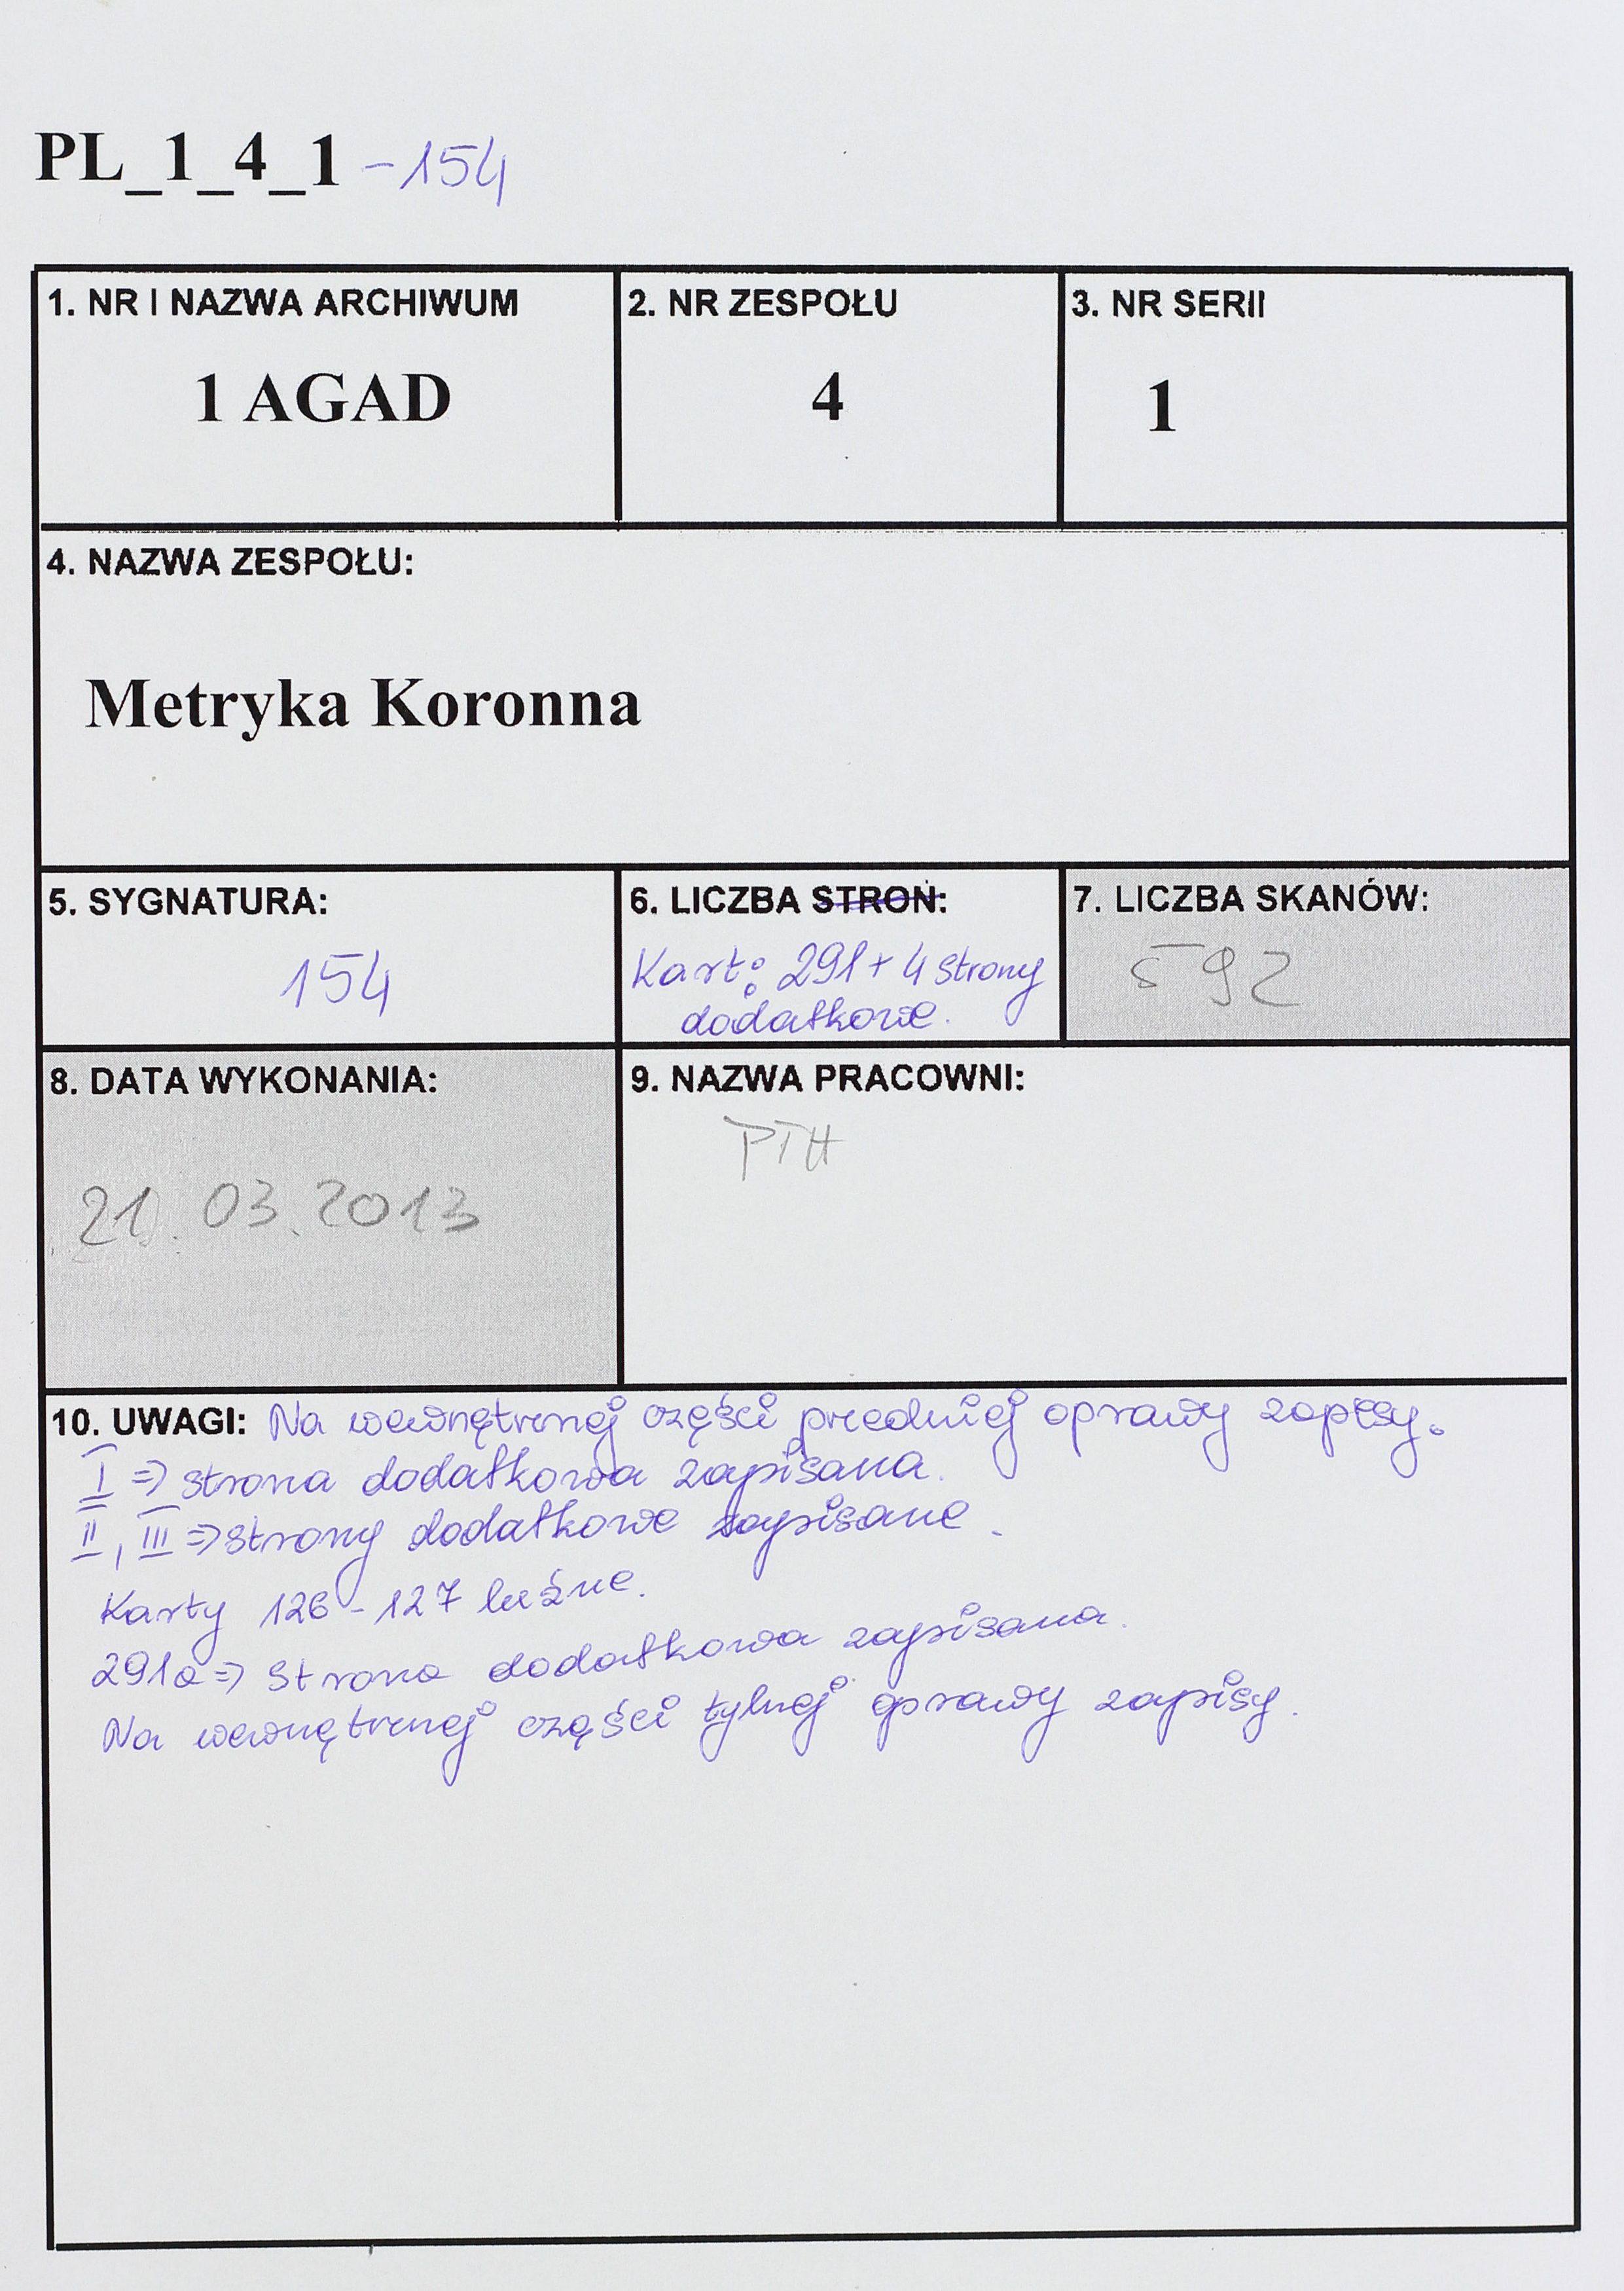 PL_1_4_1 - 154
1. NR I NAZWA ARCHIWUM
1 AGAD
2. NR ZESPOŁU
4
3. NR SERII
1
4. NAZWA ZESPOŁU:
Metryka Koronna
5. SYGNATURA:
154
6. LICZBA STRON:
Kart: 291 + 4 strony
dodatkowe.
7. LICZBA SKANÓW:
592
8. DATA WYKONANIA:
21.03.2013
9. NAZWA PRACOWNI:
PTH
10. UWAGI: Na wewnętrznej części przedniej oprawy zapisy.
I => strona dodatkowa zapisana.
II, III => strony dodatkowe zapisane.
Karty 126-127 luźne.
291a => strona dodatkowa zapisana.
Na wewnętrznej części tylnej oprawy zapisy.